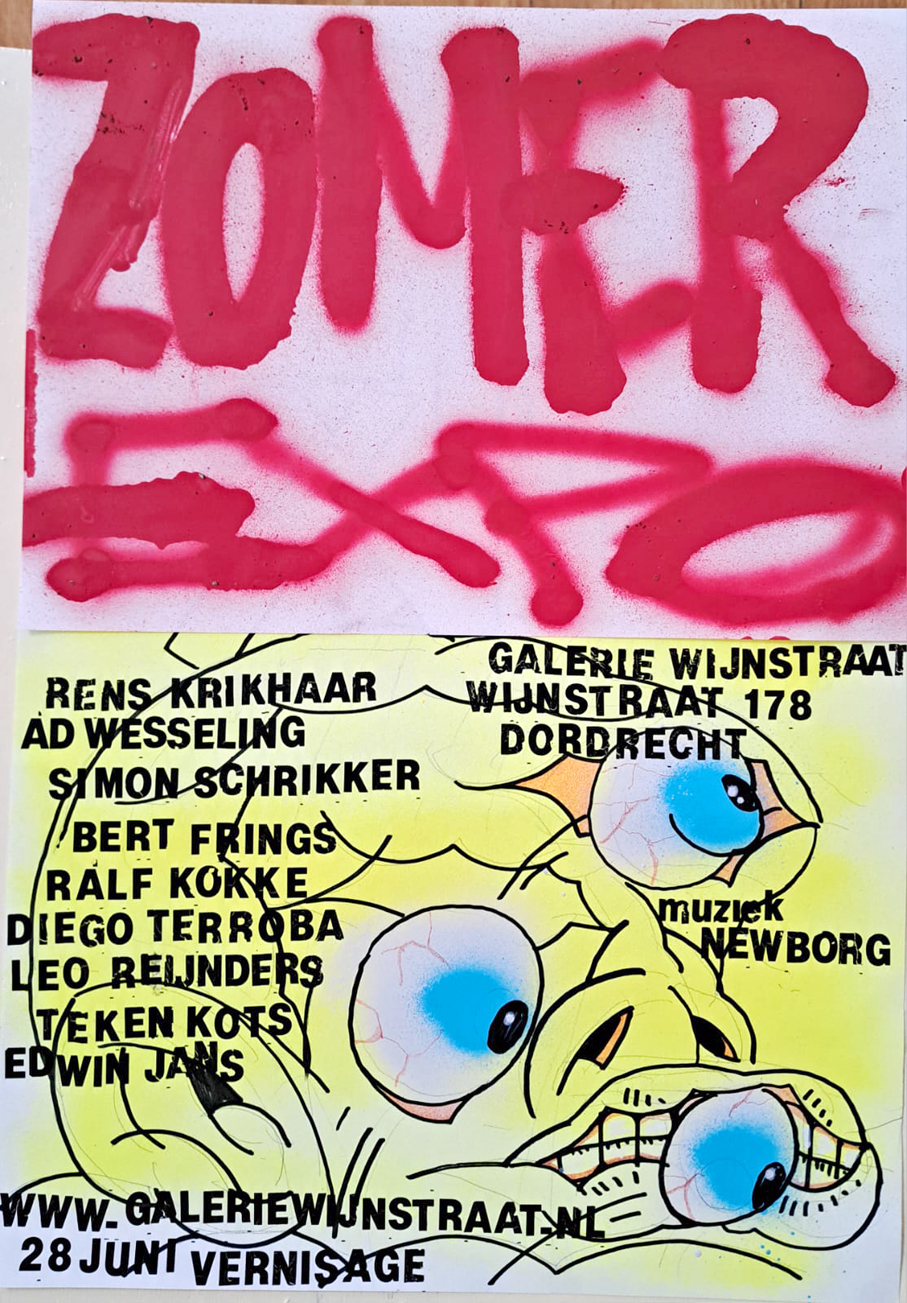 ZOMER
EXPO
GALERIE WIJNSTRAAT
WIJNSTRAAT 178
DORDRECHT
RENS KRIKHAAR
AD WESSELING
SIMON SCHRIKKER
BERT FRINGS
RALF KOKKE
DIEGO TERROBA
LEO REIJNDERS
TEKEN KOTS
EDWIN JANS
muziek
NEWBORG
WWW.GALERIEWIJNSTRAAT.NL
28 JUNI VERNISAGE